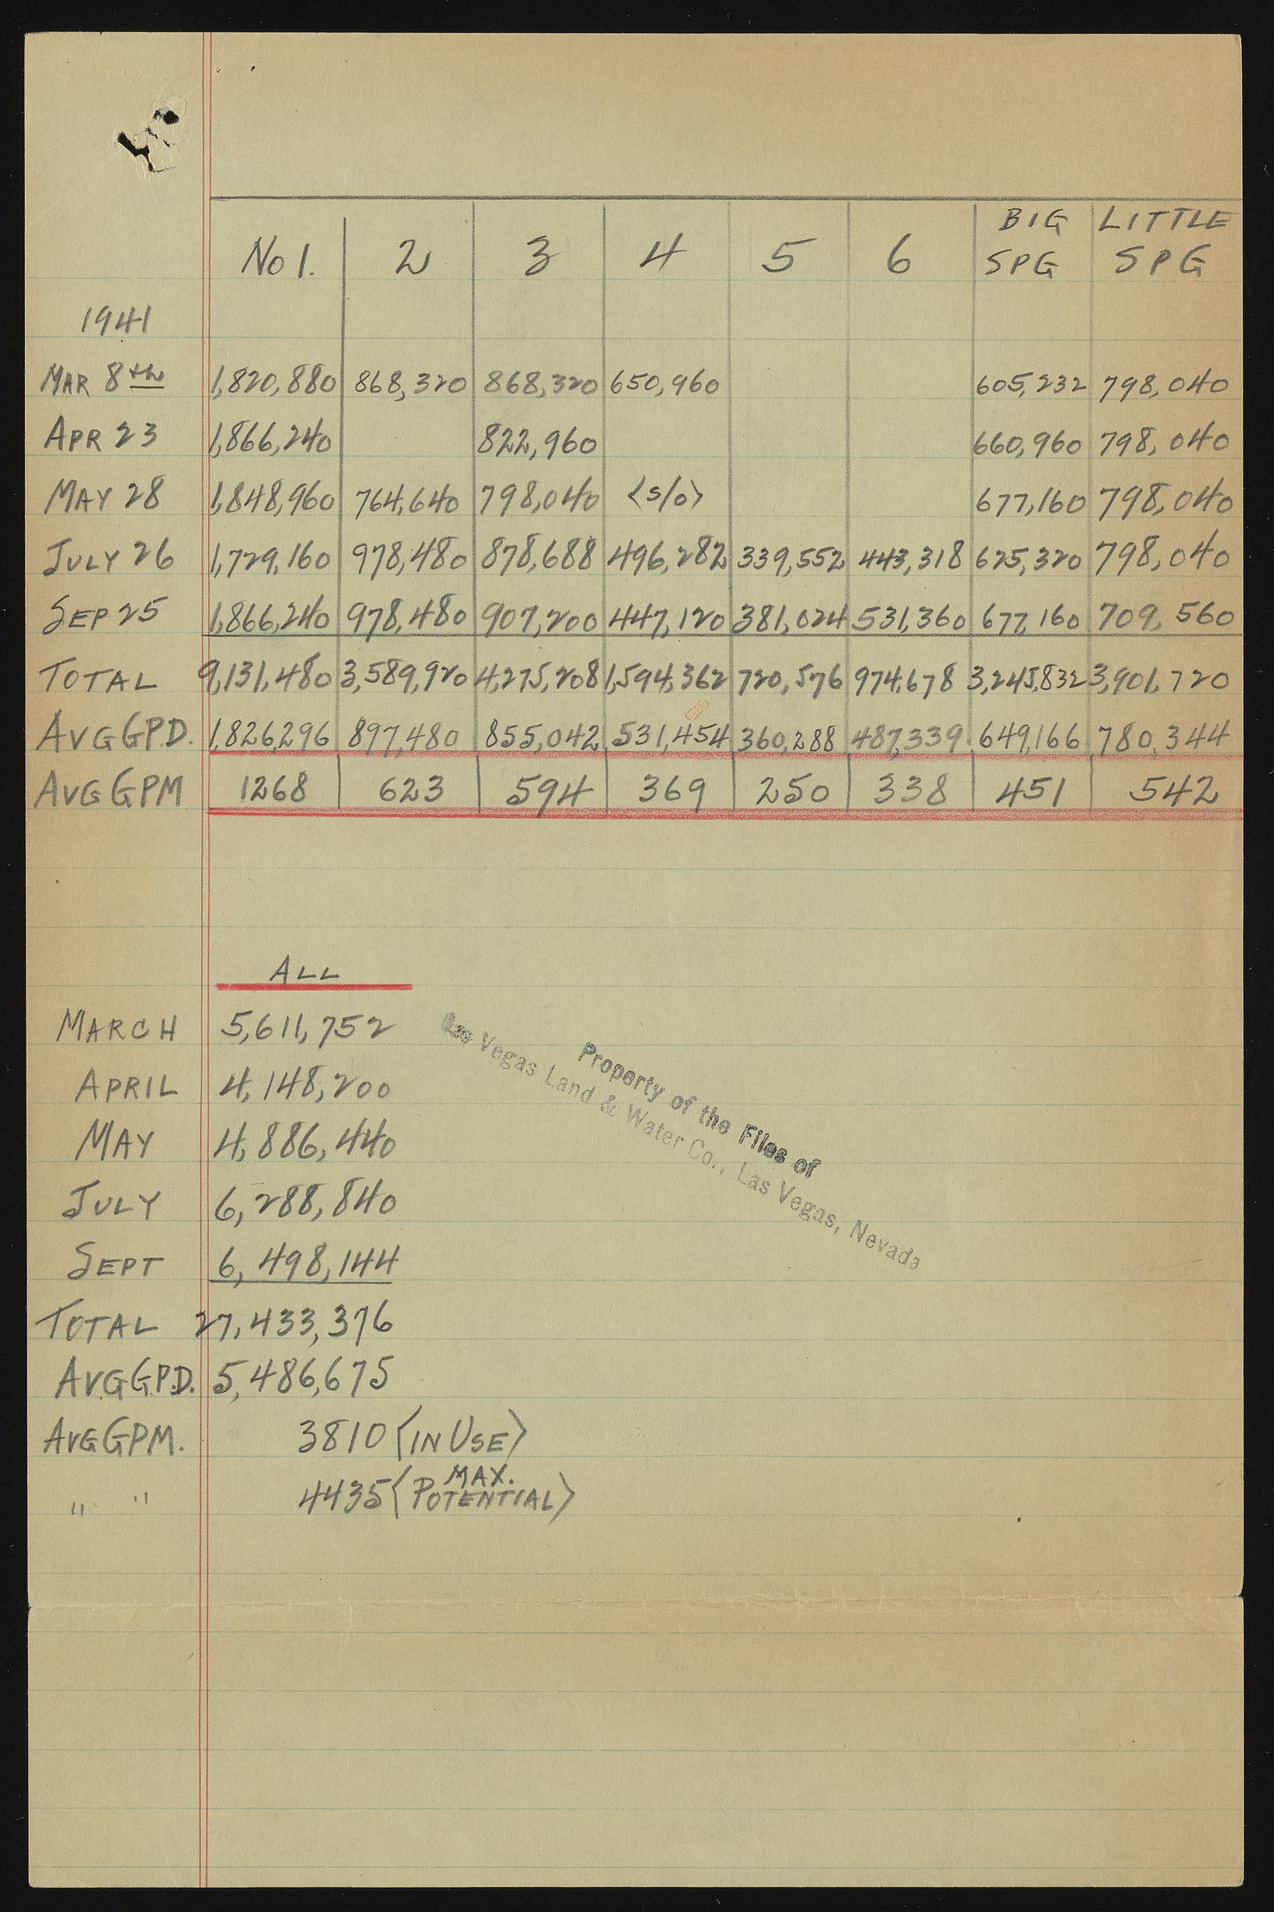 BIG LITTLE
No 1. 2 3 4 5 6 SPG SPG
1941
MAR 8th 1,820,880 868,320 868,320 650,960 605,232 798,040
APR 23 1,866,240 822,960 660,960 798,040
MAY 28 1,848,960 764,640 798,040 <s/o> 677,160 798,040
JULY 26 1,729,160 978,480 878,688 496,282 339,552 443,318 625,320 798,040
SEP 25 1,866,240 978,480 907,200 447,120 381,024 531,360 677,160 709,560
TOTAL 9,131,480 3,589,920 4,275,208 1,594,362 720,576 974,678 3,245,832 3,901,720
AVG G.P.D. 1,826,296 897,480 855,042 531,454 360,288 487,339 649,166 780,344
AVG GPM 1268 623 594 369 250 338 451 542
ALL
MARCH 5,611,752
APRIL 4,148,200
MAY 4,886,440
JULY 6,288,840
SEPT 6,498,144
TOTAL 27,433,376
AVG G.P.D. 5,486,675
AVG GPM. 3810 <IN USE>
" " 4435 <MAX. POTENTIAL>
Property of the Files of
Las Vegas Land & Water Co., Las Vegas, Nevada